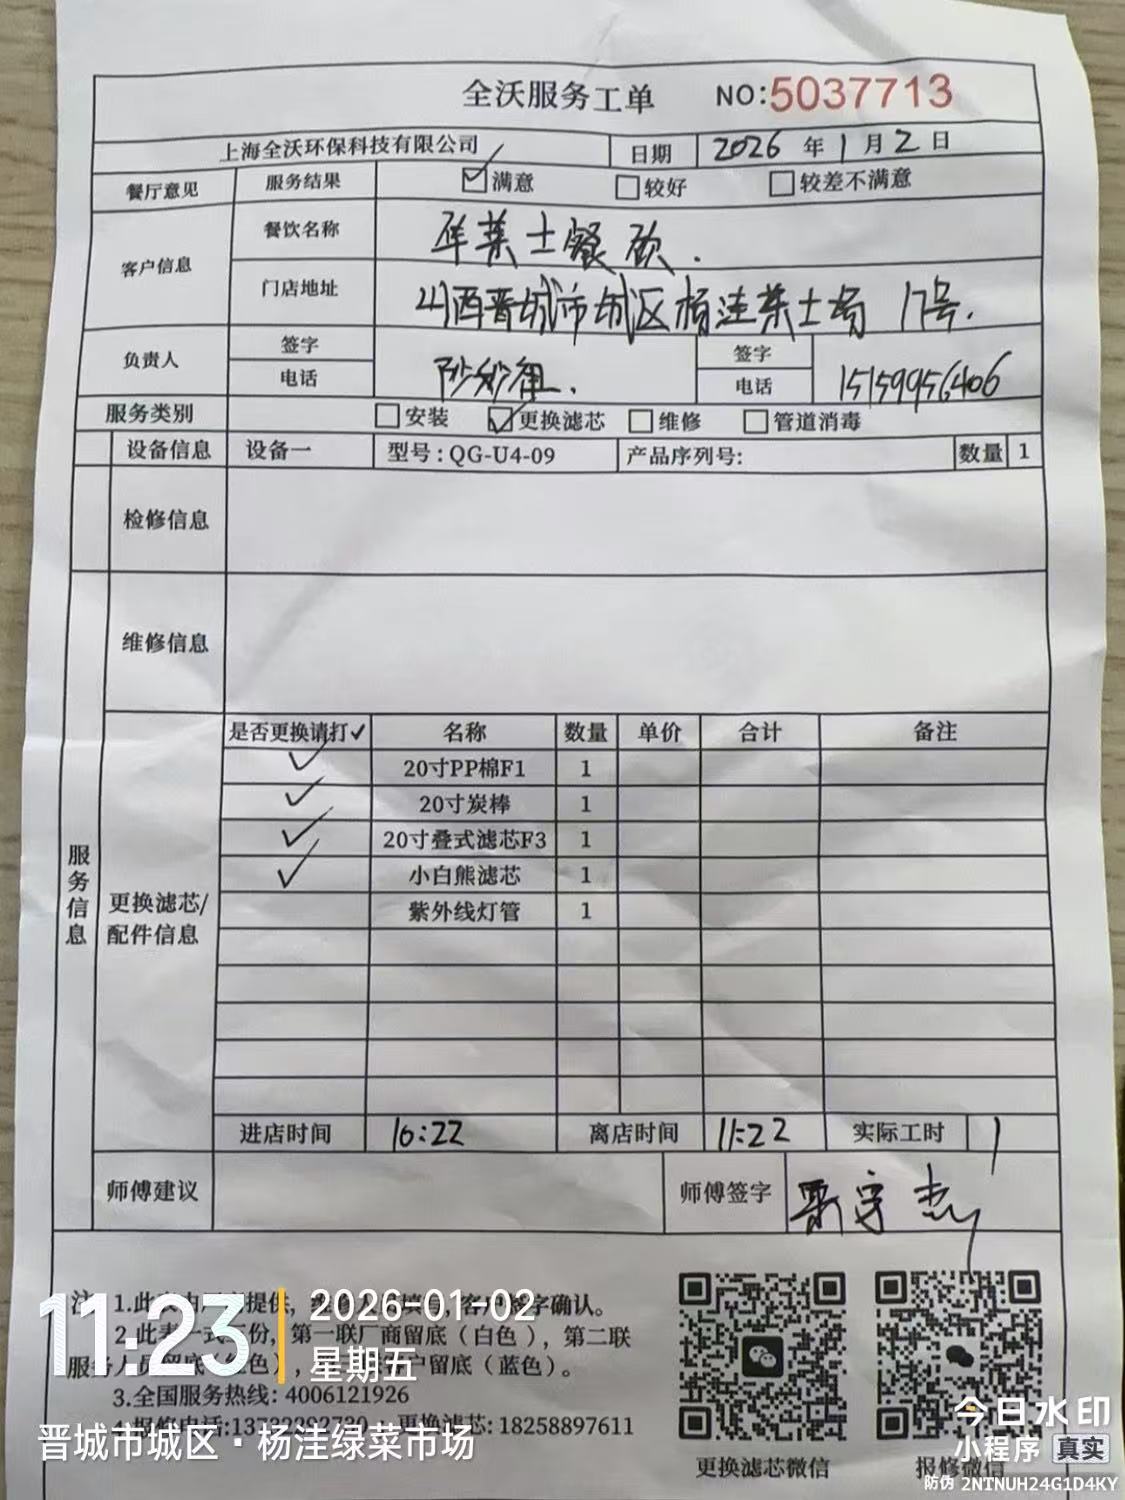 全沃服务工单 NO:5037713
上海全沃环保科技有限公司 日期 2026 年 1 月 2 日
餐厅意见 服务结果 ☑满意 □较好 □较差不满意
客户信息 餐饮名称 菜士餐饮.
门店地址 山西晋城市城区杨洼菜士场 17号.
负责人 签字 签字
电话 电话 15159956406
服务类别 □安装 ☑更换滤芯 □维修 □管道消毒
设备信息 设备一 型号:QG-U4-09 产品序列号: 数量 1
检修信息
维修信息
服务信息
更换滤芯/
配件信息
是否更换请打✓ 名称 数量 单价 合计 备注
✓ 20寸PP棉F1 1
✓ 20寸炭棒 1
✓ 20寸叠式滤芯F3 1
✓ 小白熊滤芯 1
紫外线灯管 1
进店时间 10:22 离店时间 11:22 实际工时 1
师傅建议 师傅签字 守杰
注 1.此 提供, 签字确认。
2.此表一式 份,第一联厂商留底(白色),第二联
服务人员留底(红色), 客户留底(蓝色)。
3.全国服务热线:4006121926
更换滤芯:18258897611
更换滤芯微信
报修微信
11:23
2026-01-02
星期五
晋城市城区·杨洼绿菜市场
今日水印
小程序 真实
防伪 2NTNUH24G1D4KY